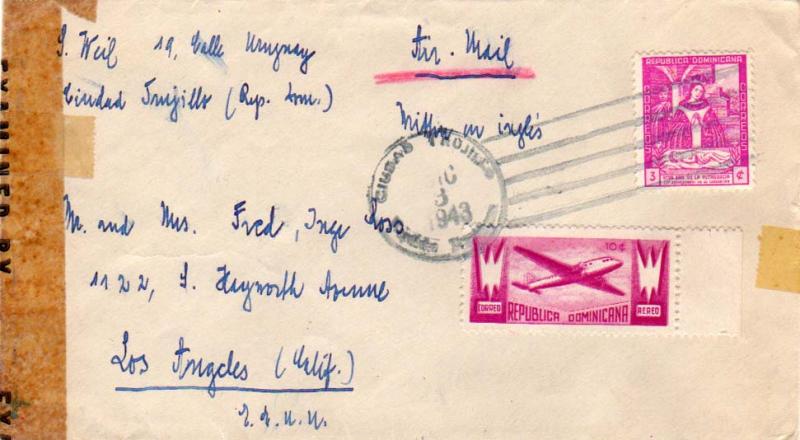 S. Weil 19, Calle Uruguay
Ciudad Trujillo (Rep. Dom.)
Air-Mail
Written en inglés
Mr. and Mrs. Fred, Inge Loss
1122, S. Hayworth Avenue
Los Angeles (Calif.)
E.E.U.U.
CIUDAD TRUJILLO
3
1943
REPUBLICA DOMINICANA
CORREOS
CORREOS
3 ¢
10¢
CORREO
AEREO
REPUBLICA DOMINICANA
EXAMINED BY
EX